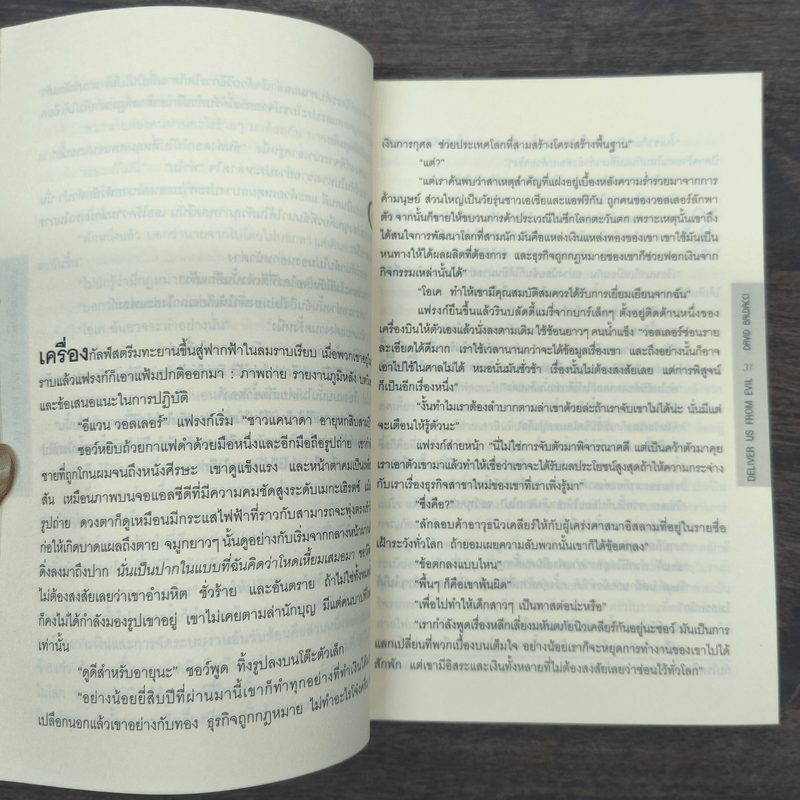 เครื่องกัลฟ์สตรีมทะยานขึ้นสู่ฟากฟ้าในลมราบเรียบ เมื่อพวกเขาอยู่ใน
ราบแล้วแฟรงก์ก็เอาแฟ้มปกติออกมา : ภาพถ่าย รายงานภูมิหลัง
และข้อเสนอแนะในการปฏิบัติ
"อีแวน วอลเลอร์" แฟรงก์เริ่ม "ชาวแคนาดา อายุหกสิบสาม
ชอว์หยิบถ้วยกาแฟดำด้วยมือหนึ่งและอีกมือถือรูปถ่าย เขากำ
ชายที่ถูกโกนผมจนถึงหนังศีรษะ เขาดูแข็งแรง และหน้าตาคมเป็น
สัน เหมือนภาพบนจอแอลซีดีที่มีความคมชัดสูงระดับเมกะเฮิรตซ์
รูปถ่าย ดวงตาก็ดูเหมือนมีกระแสไฟฟ้าที่ราวกับสามารถจะพุ่งตรง
ก่อให้เกิดบาดแผลถึงตาย จมูกยาวๆ นั้นดูอย่างกับเริ่มจากกลางหน้าผาก
ดิ่งลงมาถึงปาก นั่นเป็นปากในแบบที่ฉันคิดว่าโหดเหี้ยมเสมอมา ชอว์
ไม่ต้องสงสัยเลยว่าเขาอำมหิต ชั่วร้าย และอันตราย ถ้าไม่ใช่ทั้งหมด
ก็คงไม่ได้กำลังมองรูปเขาอยู่ เขาไม่เคยตามล่านักบุญ มีแต่คนบาป
เท่านั้น
"ดูดีสำหรับอายุนะ" ชอว์พูด ทิ้งรูปลงบนโต๊ะตัวเล็ก
"อย่างน้อยยี่สิบปีที่ผ่านมานี้เขาก็ทำทุกอย่างที่ทำเงิน
เปลือกนอกแล้วเขาอย่างกับทอง ธุรกิจถูกกฎหมาย ไม่ทำอะไร
เงินการกุศล ช่วยประเทศโลกที่สามสร้างโครงสร้างพื้นฐาน"
"แต่?"
"แต่เราค้นพบว่าสาเหตุสำคัญที่แฝงอยู่เบื้องหลังความร่ำรวยมาจากการ
ค้ามนุษย์ ส่วนใหญ่เป็นวัยรุ่นชาวเอเชียและแอฟริกัน ถูกคนของวอลเลอร์ลักพา
ตัว จากนั้นก็ขายให้ขบวนการค้าประเวณีในซีกโลกตะวันตก เพราะเหตุนั้นเขาถึง
ได้สนใจการพัฒนาโลกที่สามนัก มันคือแหล่งเงินแหล่งทองของเขา เขาใช้มันเป็น
หนทางให้ได้ผลผลิตที่ต้องการ และธุรกิจถูกกฎหมายของเขาก็ช่วยฟอกเงินจาก
กิจกรรมเหล่านั้นได้"
"โอเค ทำให้เขามีคุณสมบัติสมควรได้รับการเยี่ยมเยียนจากฉัน"
แฟรงก์ยืนขึ้นแล้วรินบลัดดี้แมรี่จากบาร์เล็กๆ ตั้งอยู่ติดด้านหนึ่งของ
เครื่องบินให้ตัวเองแล้วนั่งลงตามเดิม ใช้ช้อนยาวๆ คนน้ำแข็ง "วอลเลอร์ซ่อนราย
ละเอียดได้ดีมาก เราใช้เวลานานกว่าจะได้ข้อมูลเรื่องเขา และถึงอย่างนั้นก็อาจ
เอาไปใช้ในศาลไม่ได้ หมอนั่นมันชั่วช้า เรื่องนั้นไม่ต้องสงสัยเลย แต่การพิสูจน์
ก็เป็นอีกเรื่องหนึ่ง"
"งั้นทำไมเราต้องลำบากตามล่าเขาด้วยล่ะถ้าเราจับเขาไม่ได้น่ะ นั่นมีแต่
จะเตือนให้รู้ตัวนะ"
แฟรงก์ส่ายหน้า "นี่ไม่ใช่การจับตัวมาพิจารณาคดี แต่เป็นคว้าตัวมาคุย
เราเอาตัวเขามาแล้วทำให้เชื่อว่าเขาจะได้รับผลประโยชน์สูงสุดถ้าให้ความกระจ่าง
กับเราเรื่องธุรกิจสาขาใหม่ของเขาที่เราเพิ่งรู้มา"
"ซึ่งคือ?"
"ลักลอบค้าอาวุธนิวเคลียร์ให้กับผู้เคร่งศาสนาอิสลามที่อยู่ในรายชื่อ
เฝ้าระวังทั่วโลก ถ้ายอมเผยความลับพวกนั้นเขาก็ได้ข้อตกลง"
"ข้อตกลงแบบไหน"
"พื้นๆ ก็คือเขาพ้นผิด"
"เพื่อไปทำให้เด็กสาวๆ เป็นทาสต่อน่ะหรือ"
"เรากำลังพูดเรื่องหลีกเลี่ยงมหันตภัยนิวเคลียร์กันอยู่นะชอว์ มันเป็นการ
แลกเปลี่ยนที่พวกเบื้องบนเต็มใจ อย่างน้อยเราก็จะหยุดการทำงานของเขาไปได้
สักพัก แต่เขามีอิสระและเงินทั้งหลายที่ไม่ต้องสงสัยเลยว่าซ่อนไว้ทั่วโลก"
DELIVER US FROM EVIL 31 DAVID BALDACCI